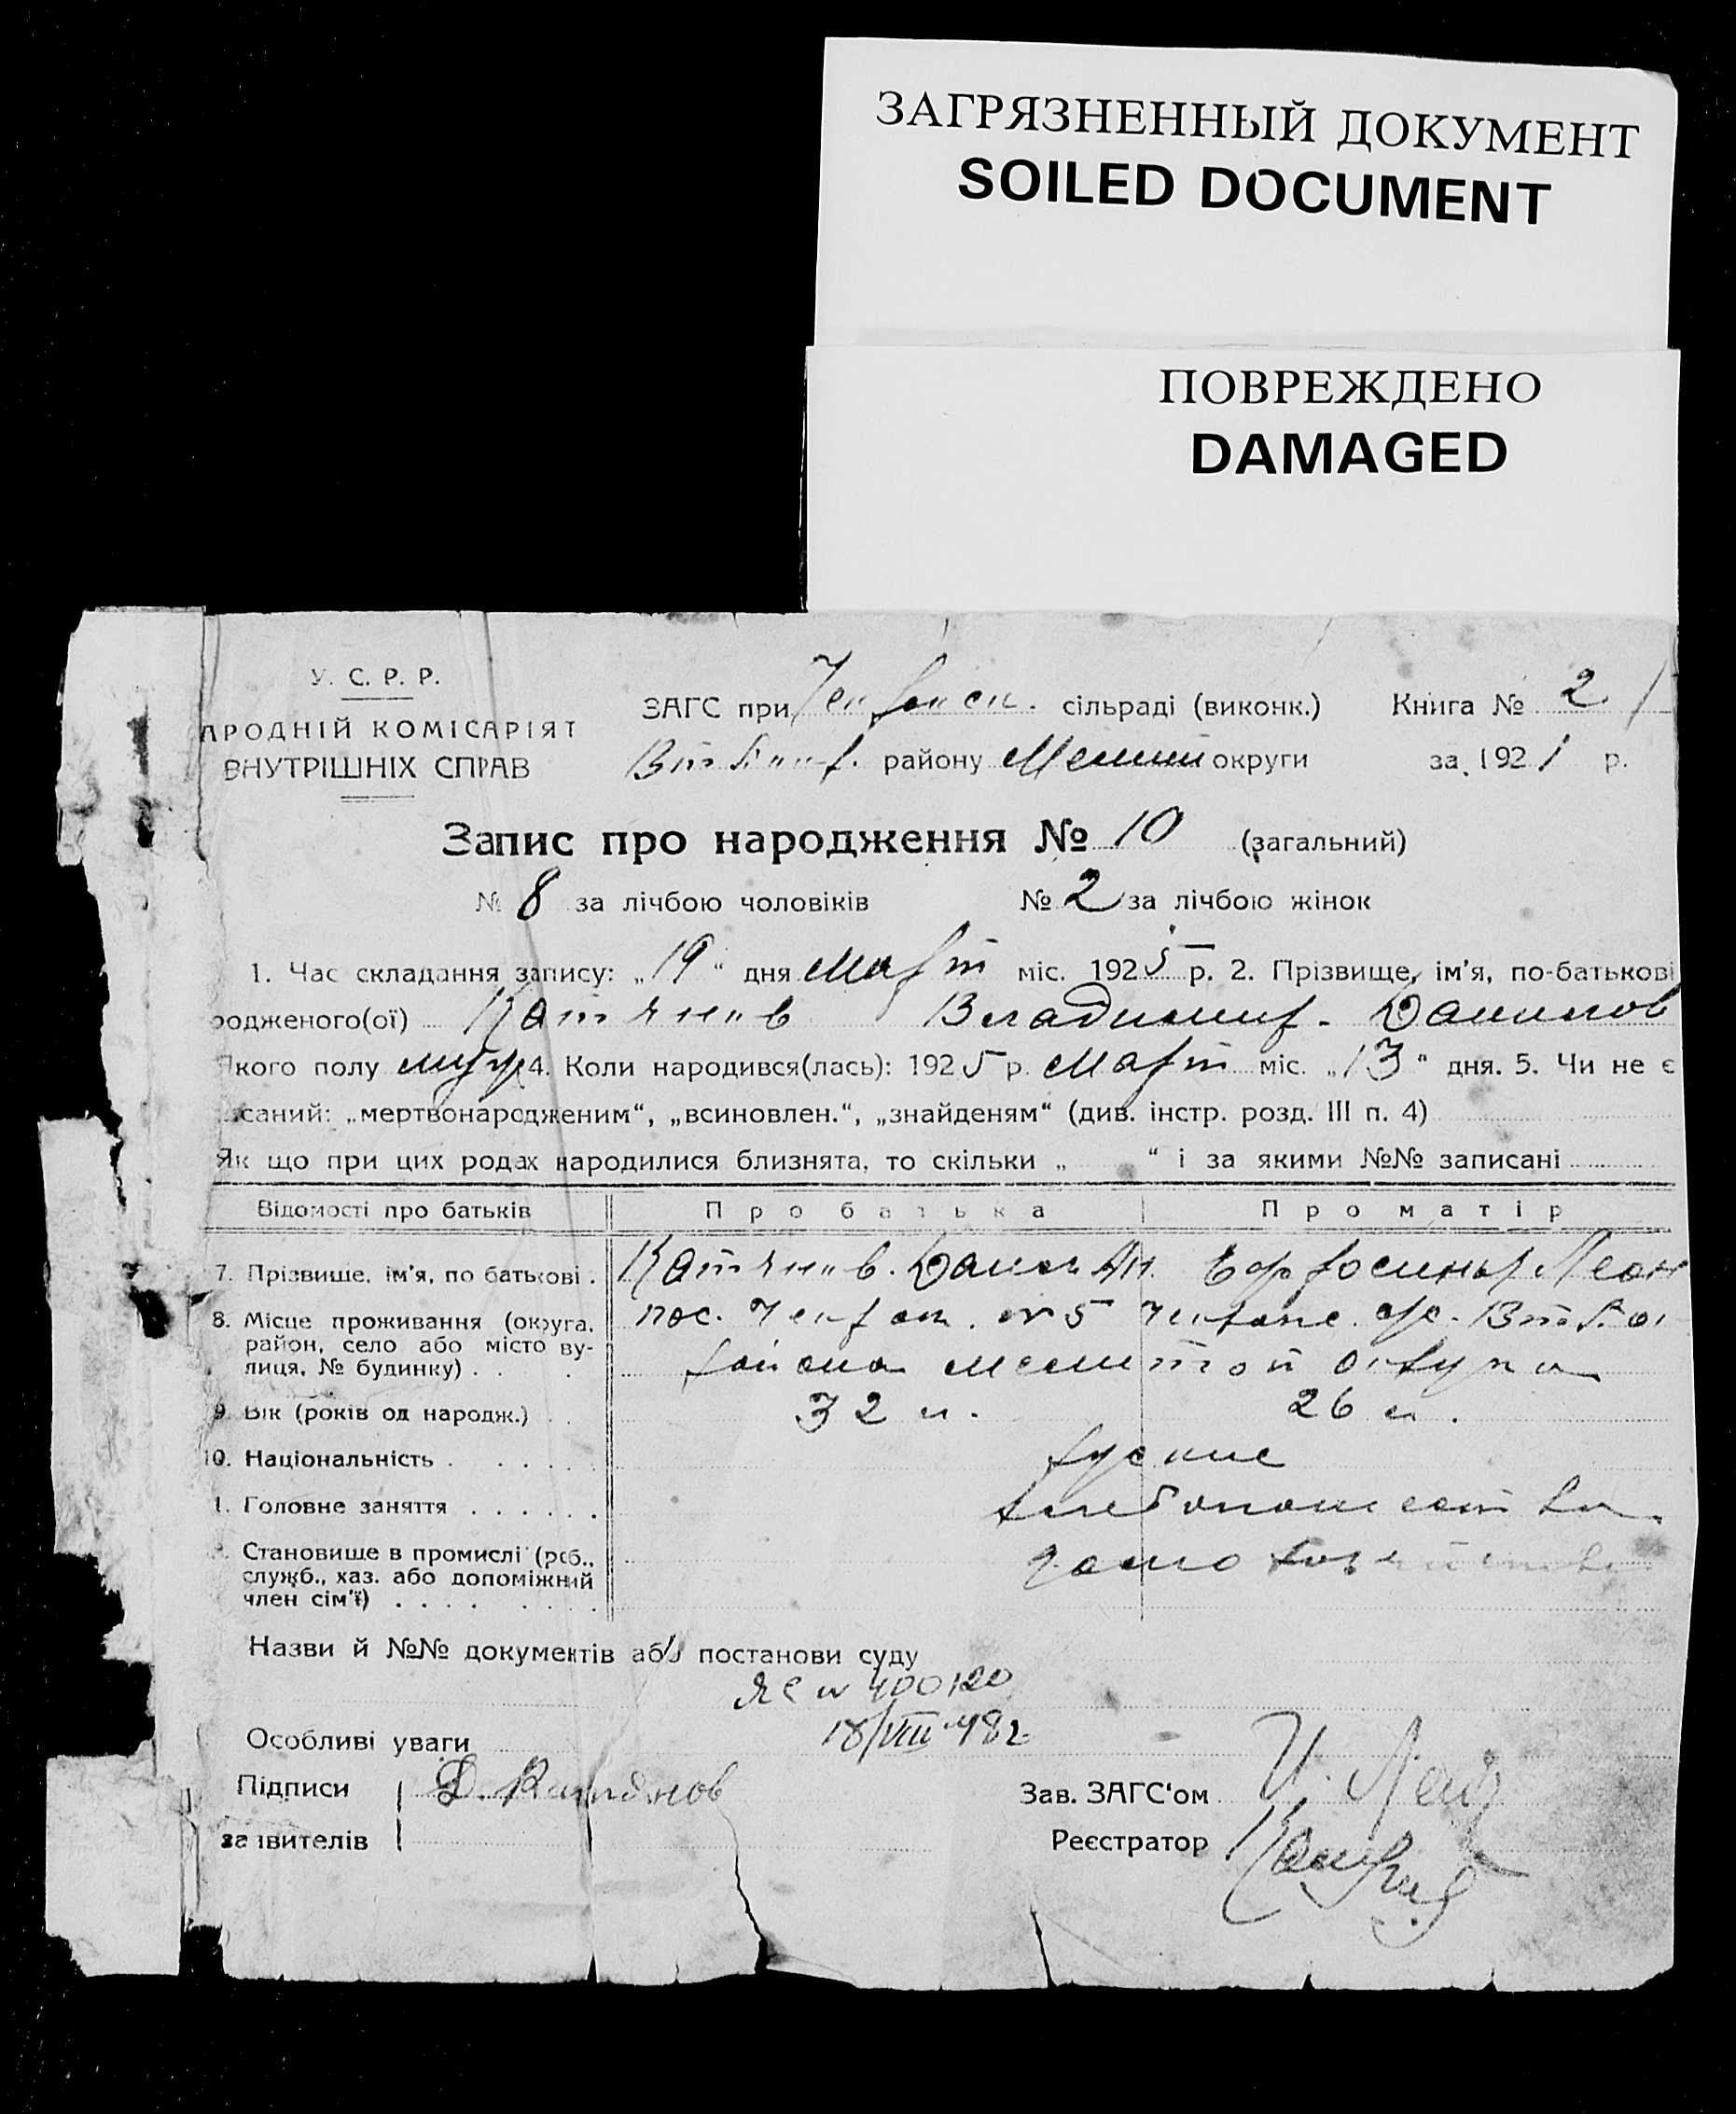 ЗАГРЯЗНЕННЫЙ ДОКУМЕНТ
SOILED DOCUMENT
ПОВРЕЖДЕНО
DAMAGED
У. С. Р. Р.
АРОДНІЙ КОМІСАРІЯТ
ВНУТРІШНІХ СПРАВ
ЗАГС при сільраді (виконк.) Книга № 2
району округи за 1921 р.
Запис про народження № 10 (загальний)
№ 8 за лічбою чоловіків № 2 за лічбою жінок
1. Час складання запису: „19“ дня Март міс. 1925 р. 2. Прізвище, ім'я, по-батькові
родженого(ої) Владимир. Данилов
Якого полу муж 4. Коли народився(лась): 1925 р. Март міс. „13“ дня. 5. Чи не є
саний: „мертвонародженим“, „всиновлен.“, „знайденям“ (див. інстр. розд. III п. 4)
Як що при цих родах народилися близнята, то скільки „ “ і за якими №№ записані
Відомості про батьків Про батька Про матір
7. Прізвище, ім'я, по батькові . Данил Ефросинья Леон
8. Місце проживання (округа, район, село або місто вулиця, № будинку) . . пос. № 5
района округи
9. Вік (років од народж.) . . 32 л. 26 л.
10. Національність . . . . . . русские
1. Головне заняття . . . . . . хлебопашество
Становище в промислі (роб., служб., хаз. або допоміжний член сім'ї) . . . .
Назви й №№ документів або постанови суду
ЯС № 400120
18/VIII-48 г.
Особливі уваги
Підписи Д. Зав. ЗАГС'ом
заявителів Реєстратор